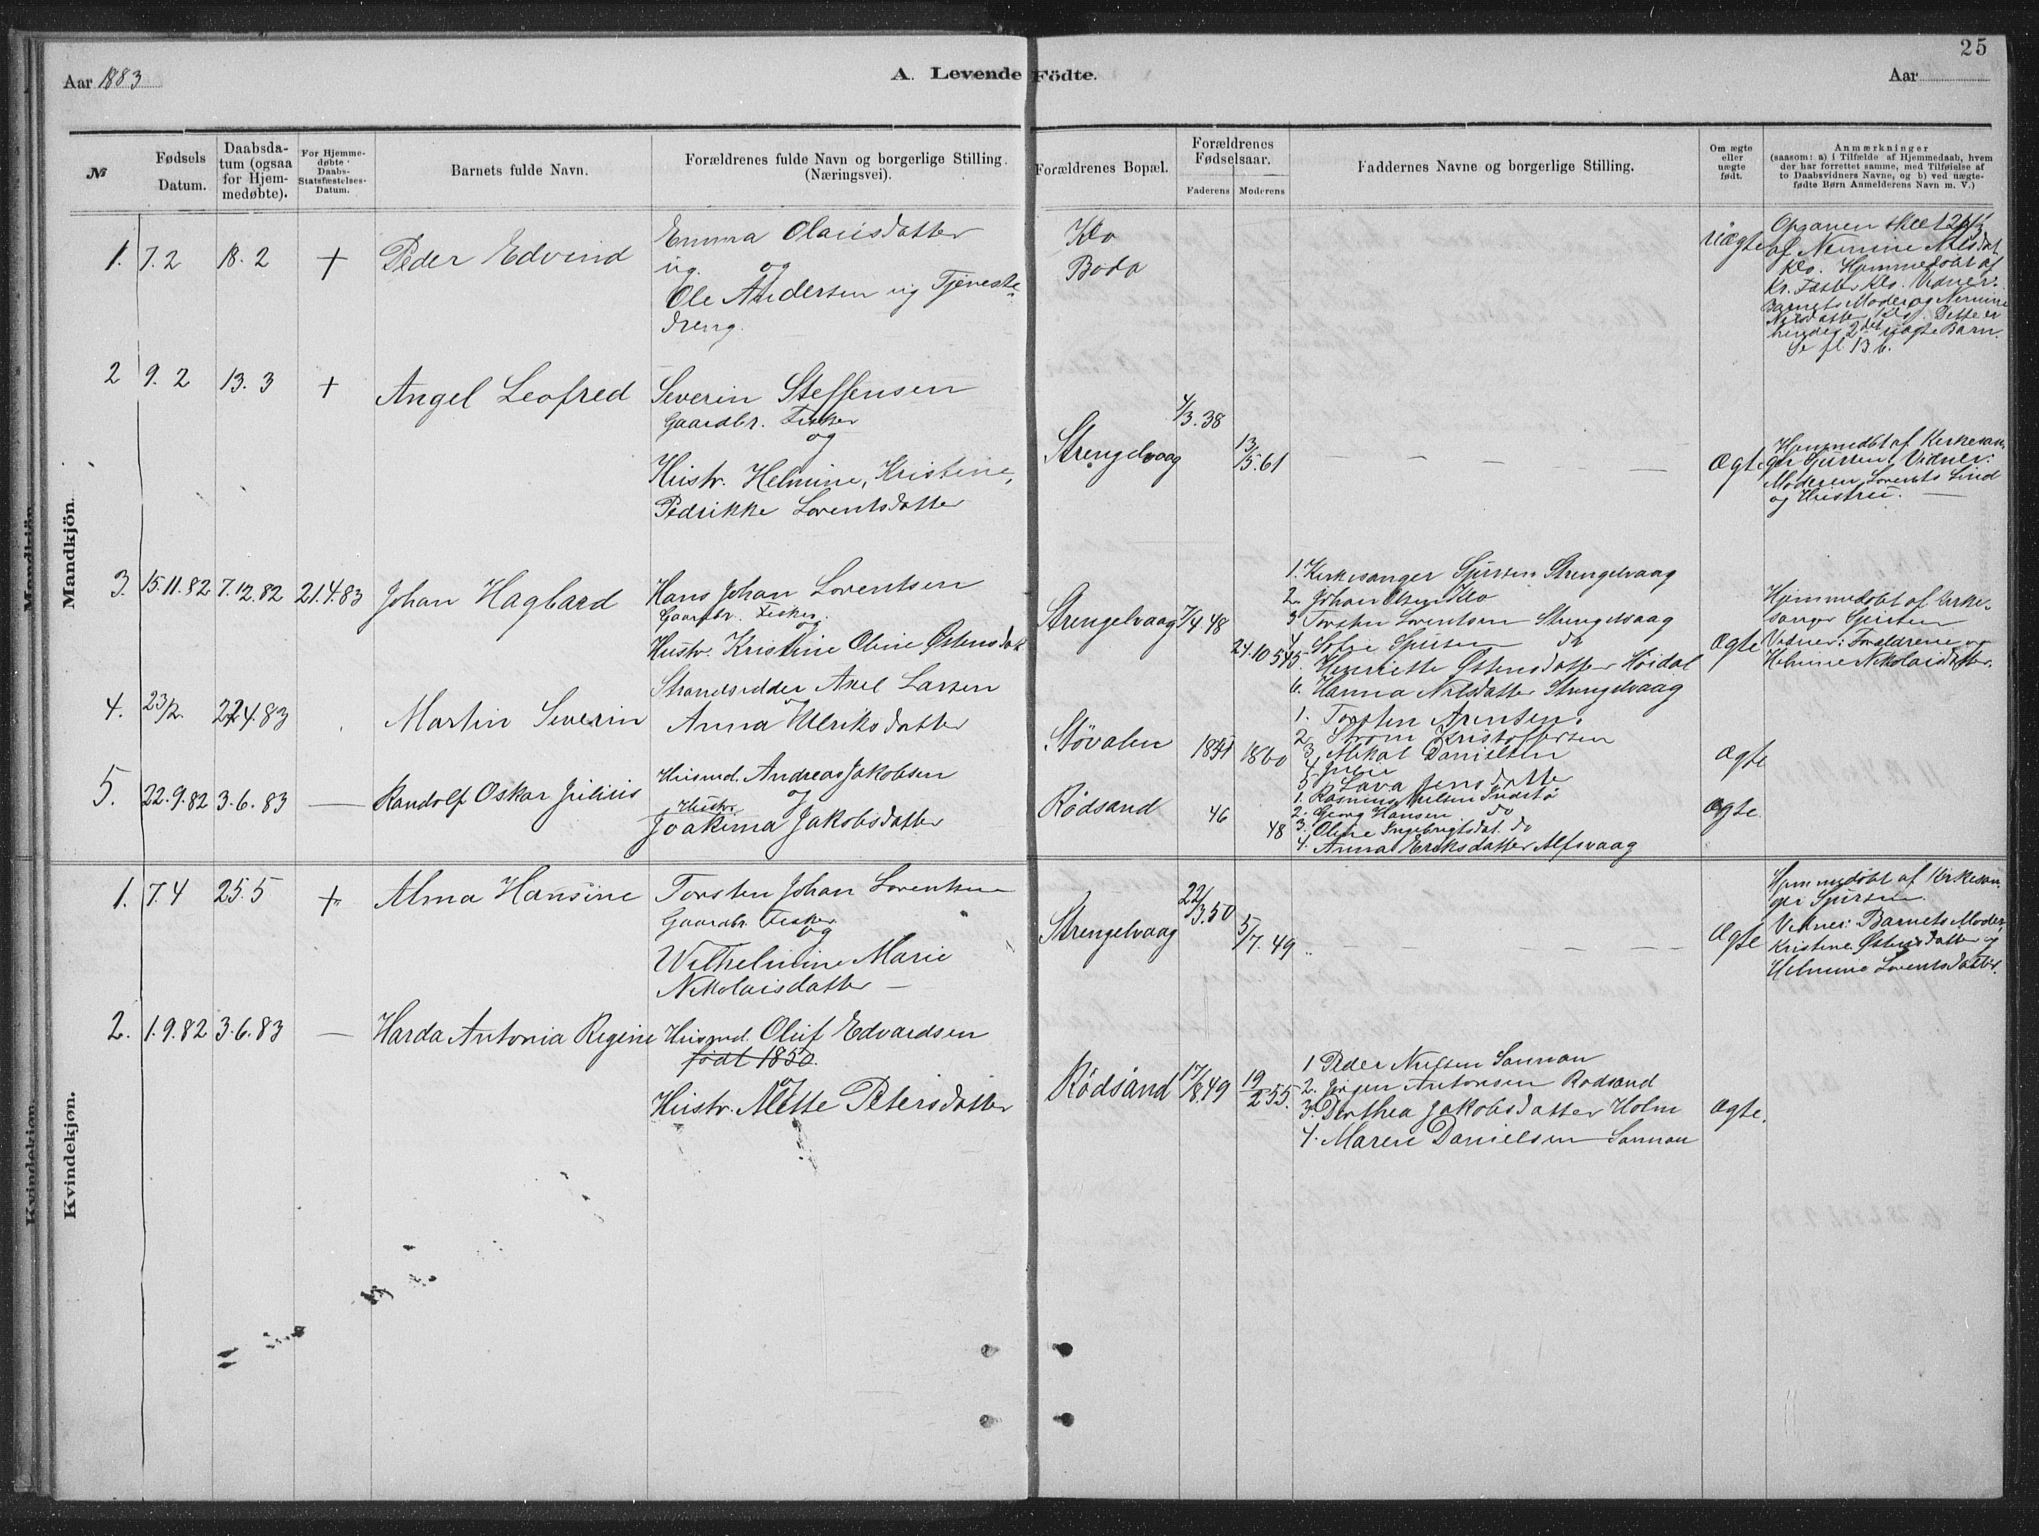 25
Aar 1883
A. Levende Födte.
Aar
№
Fødsels Datum.
Daabsdatum (ogsaa for Hjemmedøbte).
For Hjemmedøbte Daabs-Statsfæstelses-Datum.
Barnets fulde Navn.
Forældrenes fulde Navn og borgerlige Stilling.
(Næringsvei).
Forældrenes Bopæl.
Forældrenes Fødselsaar.
Faderens
Moderens
Faddernes Navne og borgerlige Stilling.
Om ægte eller uægte født.
Anmærkninger
(saasom: a) i Tilfælde af Hjemmedaab, hvem
der har forrettet samme, med Tilføielse af
to Daabsvidners Navne, og b) ved uægte-
fødte Børn Anmelderens Navn m. V.)
Mandkjön.
1. 7.2 18.2 + Peder Edvind
Emma Olausdatter
ug. og
Ole Andersen ug Tjeneste-
dreng.
Klo
Bodø
uægte
af Nermine Nilsdat.
Klo. Hjemmedøbt af
Vidner:
Barnets Moder og Nermine
Nilsdatter Klo. Dette er
hendes 2det uægte Barn.
Se fl. 13 b.
2 9.2 13.3 + Angel Leofred
Severin Steffensen
Gaardbr. Fisker
og
Hustr. Helmine, Kristine,
Pedrikke Lorentsdatter
Strengelvaag
4/3.38
13/5.61
— — — — — —
Ægte
Hjemmedøbt af Kirkesan-
ger Sjursen. Vidner:
Moderen, Lorents Lind
og Hustru. —
3. 15.11.82 7.12.82 21.4.83 Johan Hagbard
Hans Johan Lorentsen
Gaardbr. Fisker.
og
Hustr. Kristine Oline Østensdat
Strengelvaag
7/4 48
24.10 54
1. Kirkesanger Sjursen Strengelvaag
2. Johan Olsen Klo
3 Torsten Lorentsen Strengelvaag
4. Sofie Sjursen do
5. Henriette Østensdatter Høidal
6. Hanna Nilsdatter Strengelvaag
Ægte
Hjemmedøbt af Kirke-
sanger Sjursen
Vidner: Forældrene og
Helmine Nikolaisdatter.
4. 23/2. 22.4.83 Martin Severin
Strandsidder Axel Larsen
og
Anna Ulriksdatter
Støvalen
1860
1. Torsten Arentsen.
2. Strøm Kristoffersen
3. Mikal Danielsen
4. Julie
5 Lava Jensdatter
Ægte
5. 22.9.82 3.6.83 — Randolf Oskar Julius
Husmd. Andreas Jakobsen
og
Hustr.
Joakima Jakobsdatter
Rödsand
46
48
1. Rasmus Nilsen Indstø
2. Georg Hansen do
3. Oline Ingebrigtsdat. do
4. Anna Eriksdatter Alfsvaag
Ægte.
Kvindekjön.
1. 7.4 25.5 + Alma Hansine
Torsten Johan Lorentsen
Gaardbr. Fisker
og
Wilhelmine Marie
Nikolaisdatter —
Strengelvaag
22/3.50
5/7.49
— — — — —
Ægte
Hjemmedøbt af Kirkesan-
ger Sjursen.
Vidner: Barnets Moder,
Kristine Østensdatter og
Helmine Lorentsdatter.
2. 1.9.82 3.6.83 — Harda Antonia Regine
Husmd. Oluf Edvardsen
født 1850.
og
Hustr. Mette Petersdatter
Rödsand
17/8.49
19/2 55.
1 Peder Nilsen Sannan
2. Jørgen Antonsen Rødsand
3. Dorthea Jakobsdatter Holm
4. Maren Danielsen Sannan
Ægte.
Mandkjön
Kvindekjön.